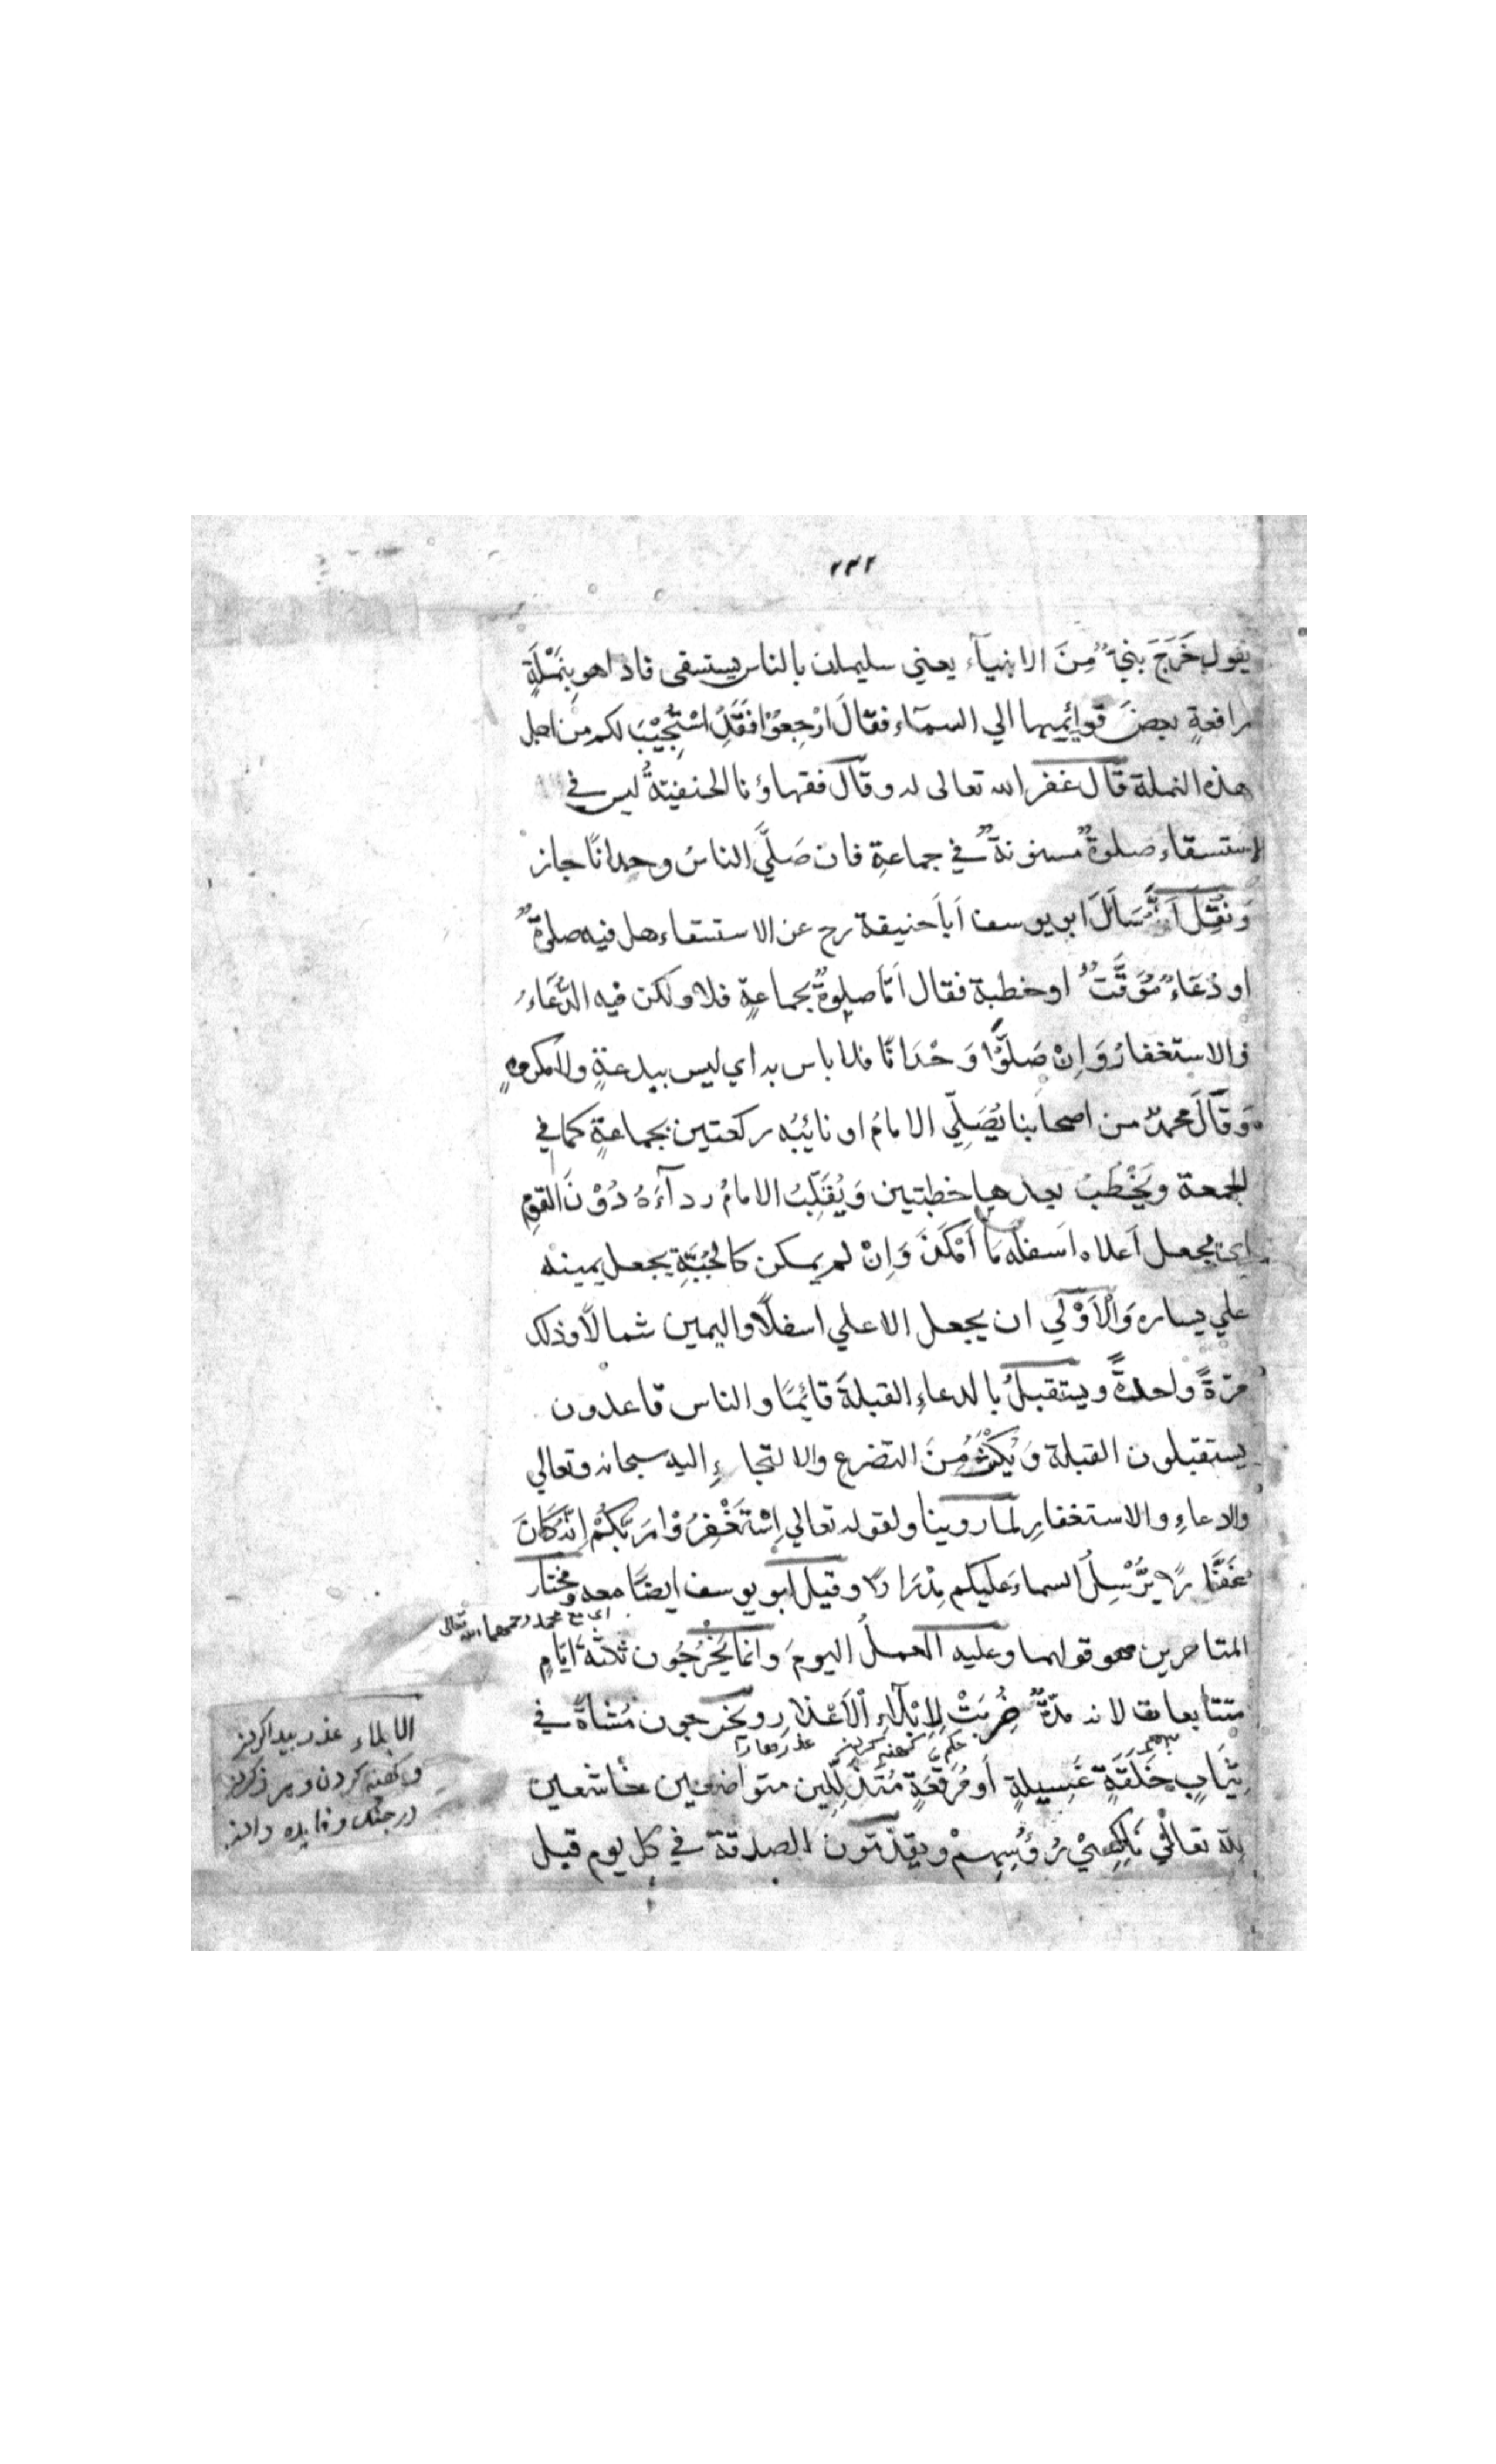 ٢٣٢
يقول خَرَجَ نبيٌّ مِنَ الانبيآء يعني سليمان بالناس يستسقى فاذا هو بِنَمْلَةٍ
رافعةٍ بعضَ قوائِمِها الي السمآء فقالَ ارْجِعُوْا فَقَدِ اسْتُجِيْبَ لكم من اجل
هذه النملة قال غفر الله تعالى له وقال فقهاؤنا الحنفيّةُ ليس في
الاستسقاء صلوةٌ مسنونةٌ في جماعةٍ فان صَلَّي الناسُ وحدانًا جاز
وَنُقِلَ اَنَّهُ سَاَلَ ابو يوسف اَبَا حنيفة رح عن الاستسقاء هل فيه صلوةٌ
او دُعَاءٌ مُوَقَّتٌ او خطبة فقال اَمَّا صلوةٌ بجماعةٍ فلا ولكن فيه الدُّعَاءُ
والاستغفارُ وَاِنْ صَلَّوْا وَحْدَانًا فلا باس به اي ليس ببدعةٍ ولا مكروهٍ
وَقَالَ محمدٌ من اصحابنا يُصَلِّي الامامُ او نائبُه ركعتين بجماعةٍ كما في
الجمعة ويَخْطُبُ بعدها خطبتين وَيُقَلِّبُ الامامُ رداۤءَهُ دُوْنَ القومِ
اي يجعل اَعلاه اَسفلَه مَا اَمْكَنَ وَاِنْ لم يمكن كالجُبَّةِ يجعل يمينه
علي يساره وَالْاَوْلَي ان يجعل الاعلي اسفلًا واليمين شمالًا وذلك
مرّةً واحدةً ويستقبلُ بالدعاءِ القبلةَ قائِمًا والناس قاعدون
يستقبلون القبلة وَيُكْثِرُ مِنَ التضرع والالتجاءِ اليه سبحانه وتعالي
والدعاءِ والاستغفارِ لما روينا ولقوله تعالي اِسْتَغْفِرُوْا رَبَّكُمْ اِنَّهُ كَانَ
غَفَّارًا يُّرْسِلُ السماءَ عليكم مِدْرَارًا وقيل ابو يوسف ايضًا معه ومختار
اى مع محمد رحمهما الله تعالى
المتاخرين هو قولهما وعليه العملُ اليومَ وانما يَخْرُجُون ثلثةَ ايّامٍ
متتابعات لانه مدّةٌ ضُرِبَتْ لِاِبْلَاۤءِ الْاَعْذَارِ ويخرجون مُشاةً في
ثِيَابٍ خَلَقَةٍ غَسِيلةٍ اَو مُرَقَّعَةٍ مُتَذَلِّلِين متواضعين خاشعين
لِلّه تعالٰي نَاكِسِيْ رُؤُسِهِمْ ويقدّمون الصدقة في كل يوم قبل
الابلاء عذر بيدا كردن
وكهنه كردن
در جنك وفايده دادن